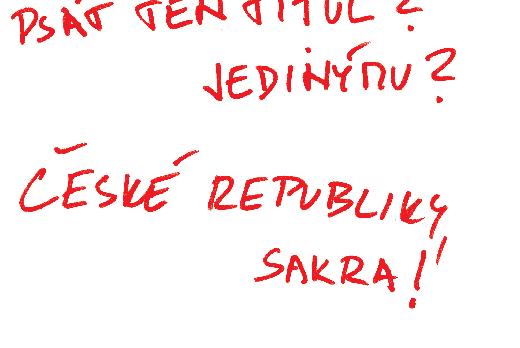 PSÁT TEN TITUL?
JEDINÝMU?
ČESKÉ REPUBLIKY
SAKRA!